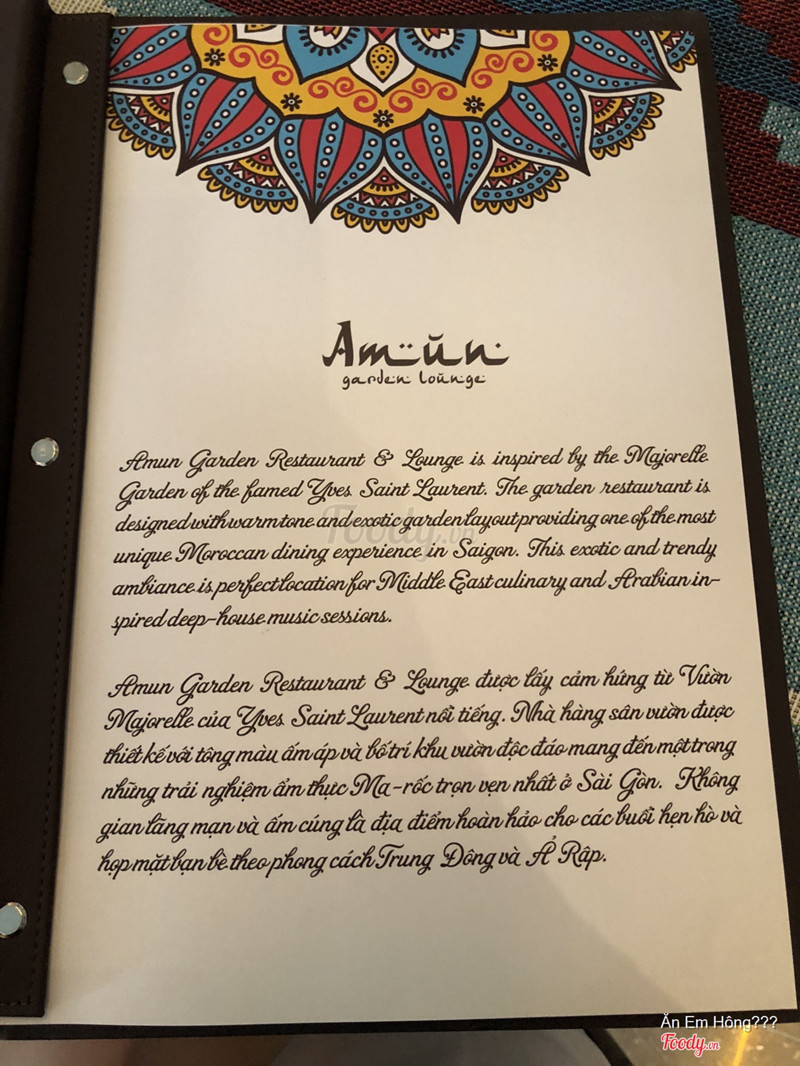 Amun
garden lounge
Amun Garden Restaurant & Lounge is inspired by the Majorelle
Garden of the famed Yves Saint Laurent. The garden restaurant is
designed with warm tone and exotic garden layout providing one of the most
unique Moroccan dining experience in Saigon. This exotic and trendy
ambiance is perfect location for Middle East culinary and Arabian in-
spired deep-house music sessions.
Amun Garden Restaurant & Lounge được lấy cảm hứng từ Vườn
Majorelle của Yves Saint Laurent nổi tiếng. Nhà hàng sân vườn được
thiết kế với tông màu ấm áp và bố trí khu vườn độc đáo mang đến một trong
những trải nghiệm ẩm thực Ma-rốc trọn vẹn nhất ở Sài Gòn. Không
gian lãng mạn và ấm cúng là địa điểm hoàn hảo cho các buổi hẹn hò và
họp mặt bạn bè theo phong cách Trung Đông và Ả Rập.
Foody.vn
Ăn Em Hông???
Foody.vn